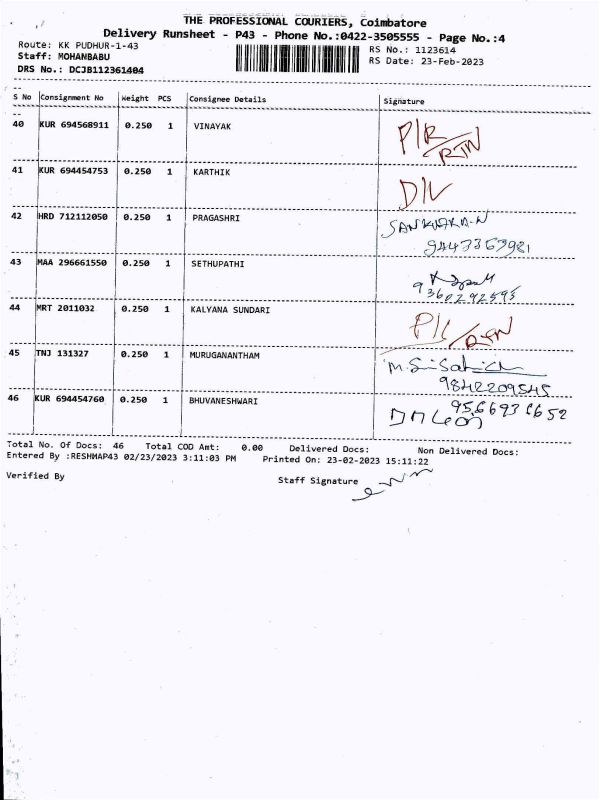 THE PROFESSIONAL COURIERS, Coimbatore
Delivery Runsheet - P43 - Phone No.:0422-3505555 - Page No.:4
Route: KK PUDHUR-1-43
Staff: MOHANBABU
DRS No.: DCJB112361404
RS No.: 1123614
RS Date: 23-Feb-2023
S No Consignment No Weight PCS Consignee Details Signature
40 KUR 694568911 0.250 1 VINAYAK
RTN
41 KUR 694454753 0.250 1 KARTHIK D/L
42 HRD 712112050 0.250 1 PRAGASHRI
9443363981
43 MAA 296661550 0.250 1 SETHUPATHI
9360292595
44 MRT 2011032 0.250 1 KALYANA SUNDARI
RTN
45 TNJ 131327 0.250 1 MURUGANANTHAM
9842209545
46 KUR 694454760 0.250 1 BHUVANESHWARI
Total No. Of Docs: 46 Total COD Amt: 0.00 Delivered Docs: Non Delivered Docs:
Entered By :RESHMAP43 02/23/2023 3:11:03 PM Printed On: 23-02-2023 15:11:22
Verified By Staff Signature